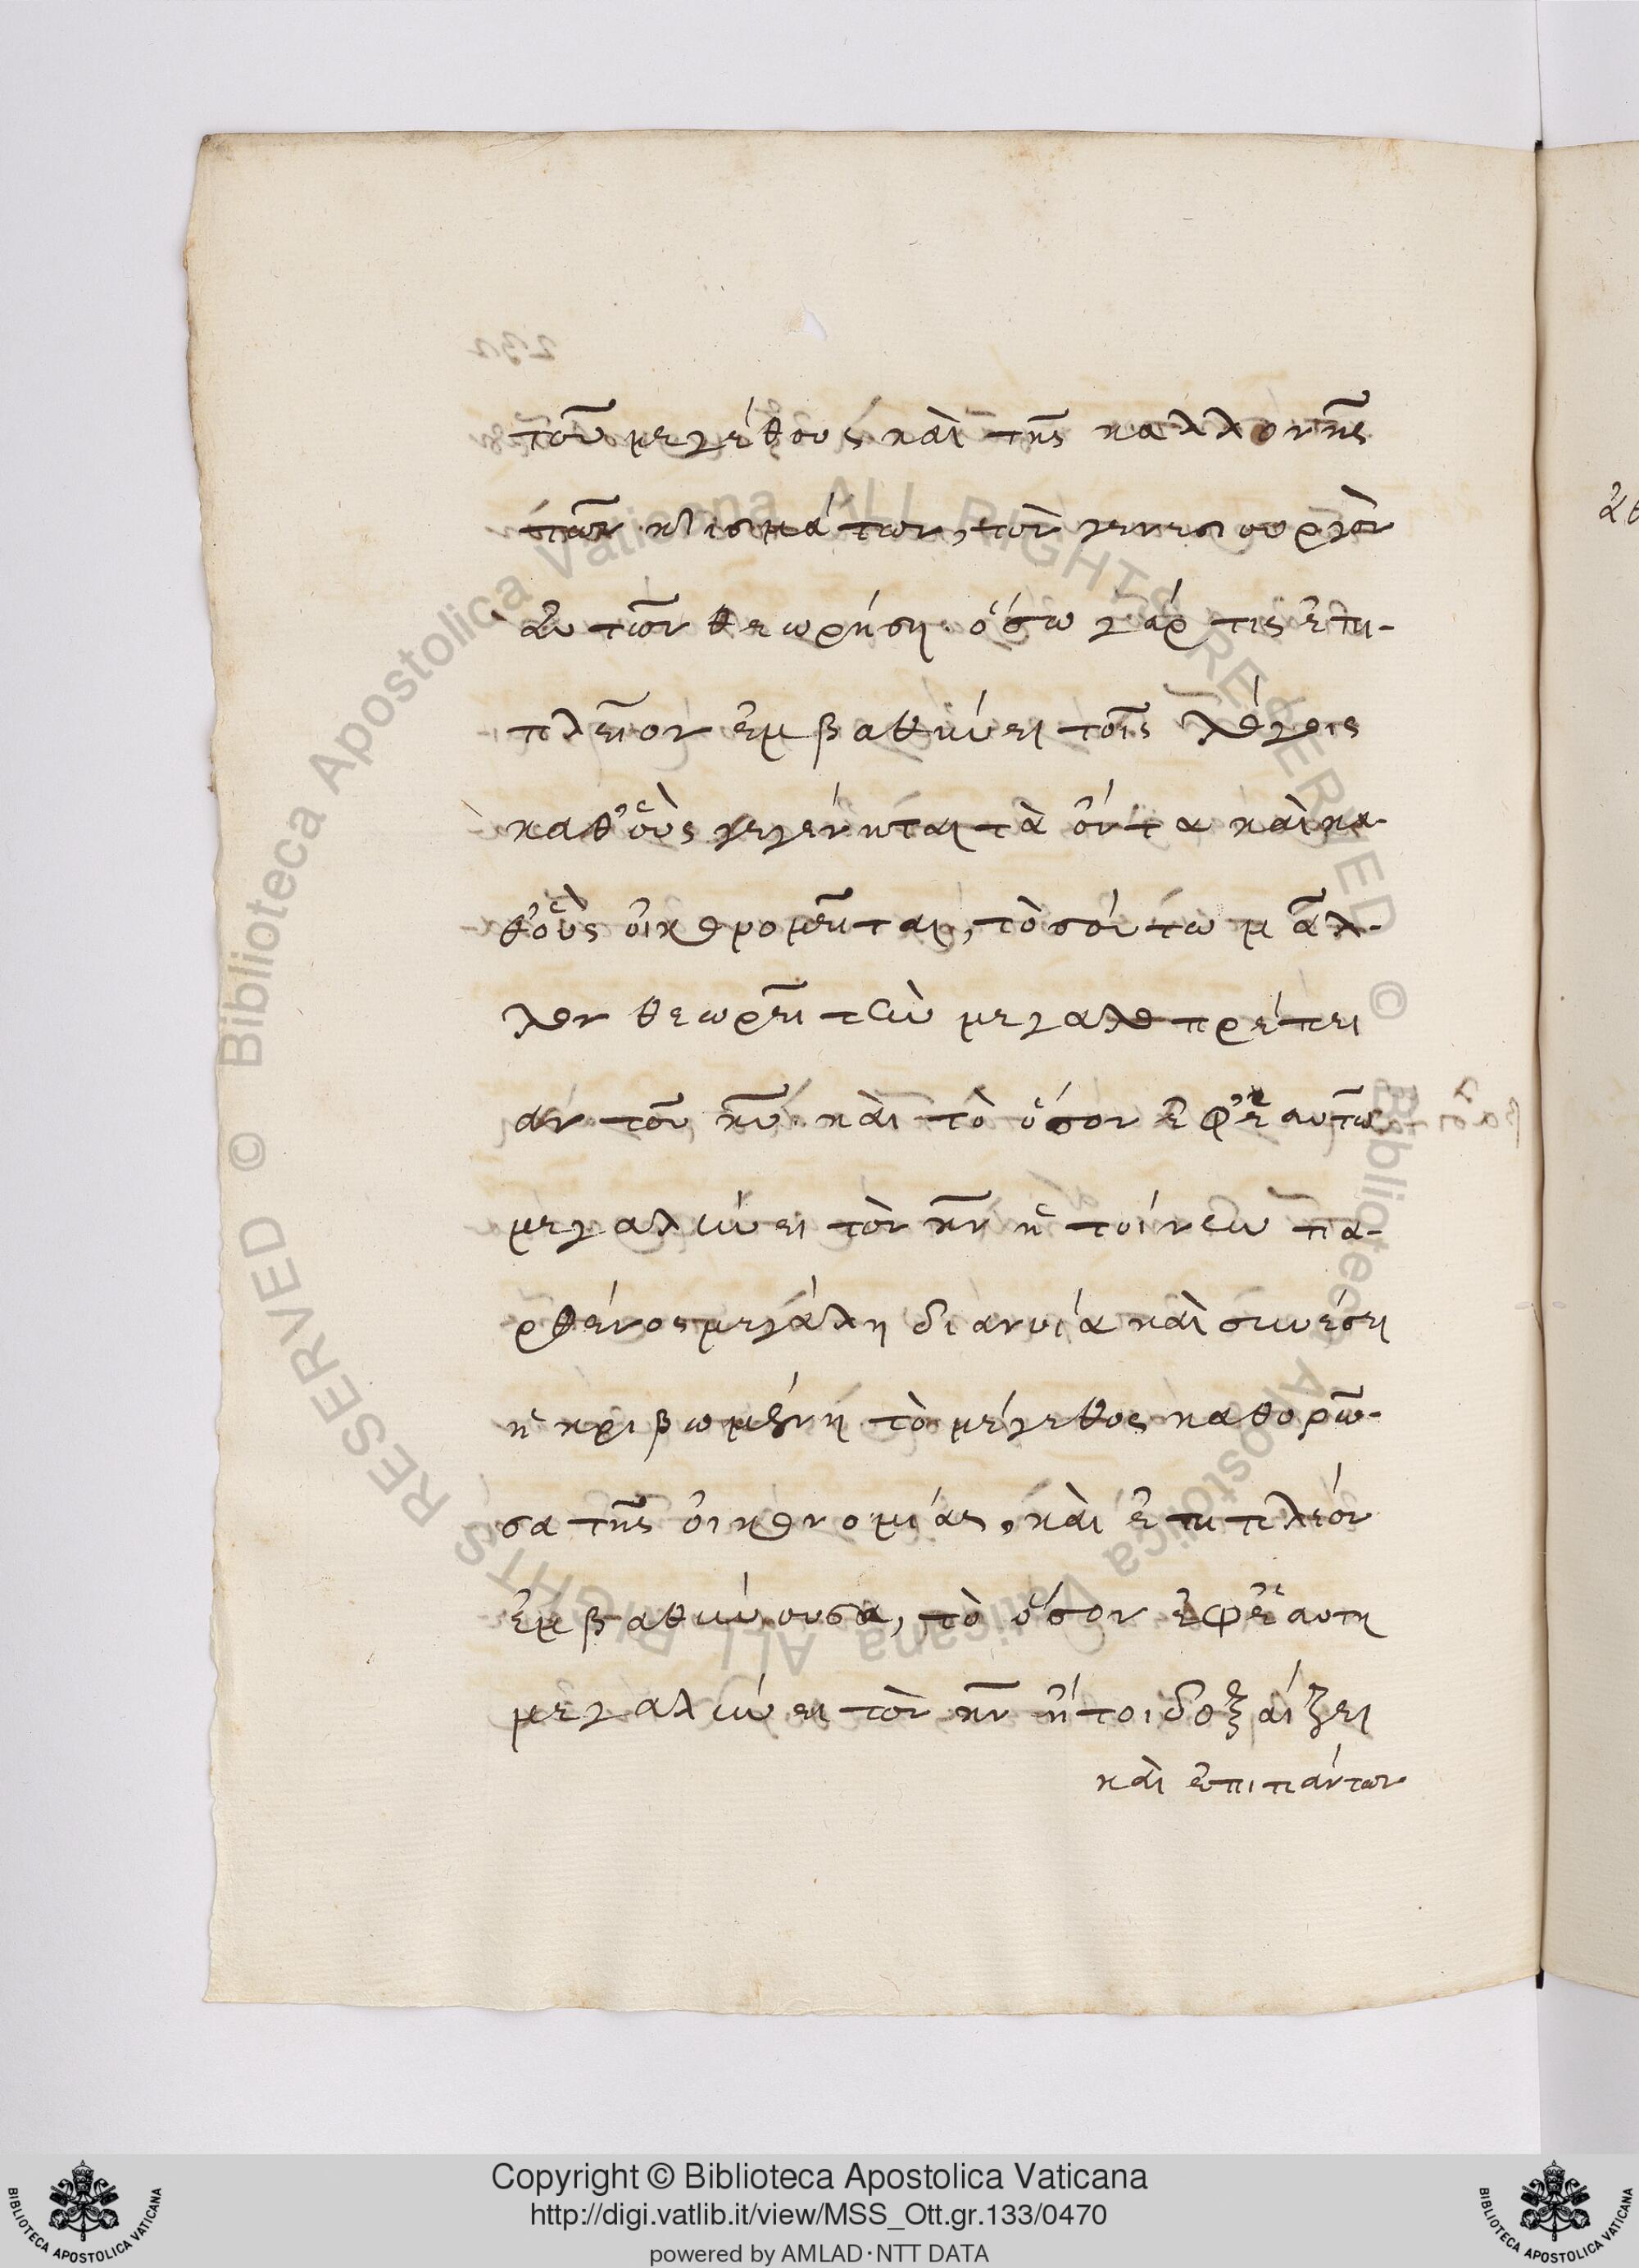 τοῦ μεγέθους καὶ τῆς καλλονῆς
τῶν κτισμάτων, τὸν γενεσιουργὸν
ἀυτῶν θεωρήση· ὅσω γάρ τις ἐπι-
πλεῖον ἐμβαθύνει τοῖς λόγοις
καθ' οὓς γεγένηται τὰ ὄντα καὶ κα-
θ' οὓς οἰκονομεῖται, τοσούτω μᾶλ-
λον θεωρεῖ τὴν μεγαλοπρέπει
αν τοῦ κυ̅· καὶ τὸ ὅσον ἐφ' ἑαυτῶ
μεγαλύνει τὸν κν̅ ἡ τοίνυν πα-
ρθένος μεγάλη διανοία καὶ συνέσει
ἠκριβωμένη τὸ μέγεθος καθορῶ-
σα τῆς οἰκονομίας, καὶ ἐπιπλέον
ἐμβαθύνουσα, τὸ ὅσον ἐφ' ἑαυτη
μεγαλύνει τὸν κν̅ ἤτοι δοξάζει
καὶ ἐπι πάντων
Copyright © Biblioteca Apostolica Vaticana
http://digi.vatlib.it/view/MSS_Ott.gr.133/0470
powered by AMLAD·NTT DATA
BIBLIOTECA APOSTOLICA VATICANA
BIBLIOTECA APOSTOLICA VATICANA
© Biblioteca Apostolica Vaticana ALL RIGHTS RESERVED © Biblioteca Apostolica Vaticana ALL RIGHTS RESERVED